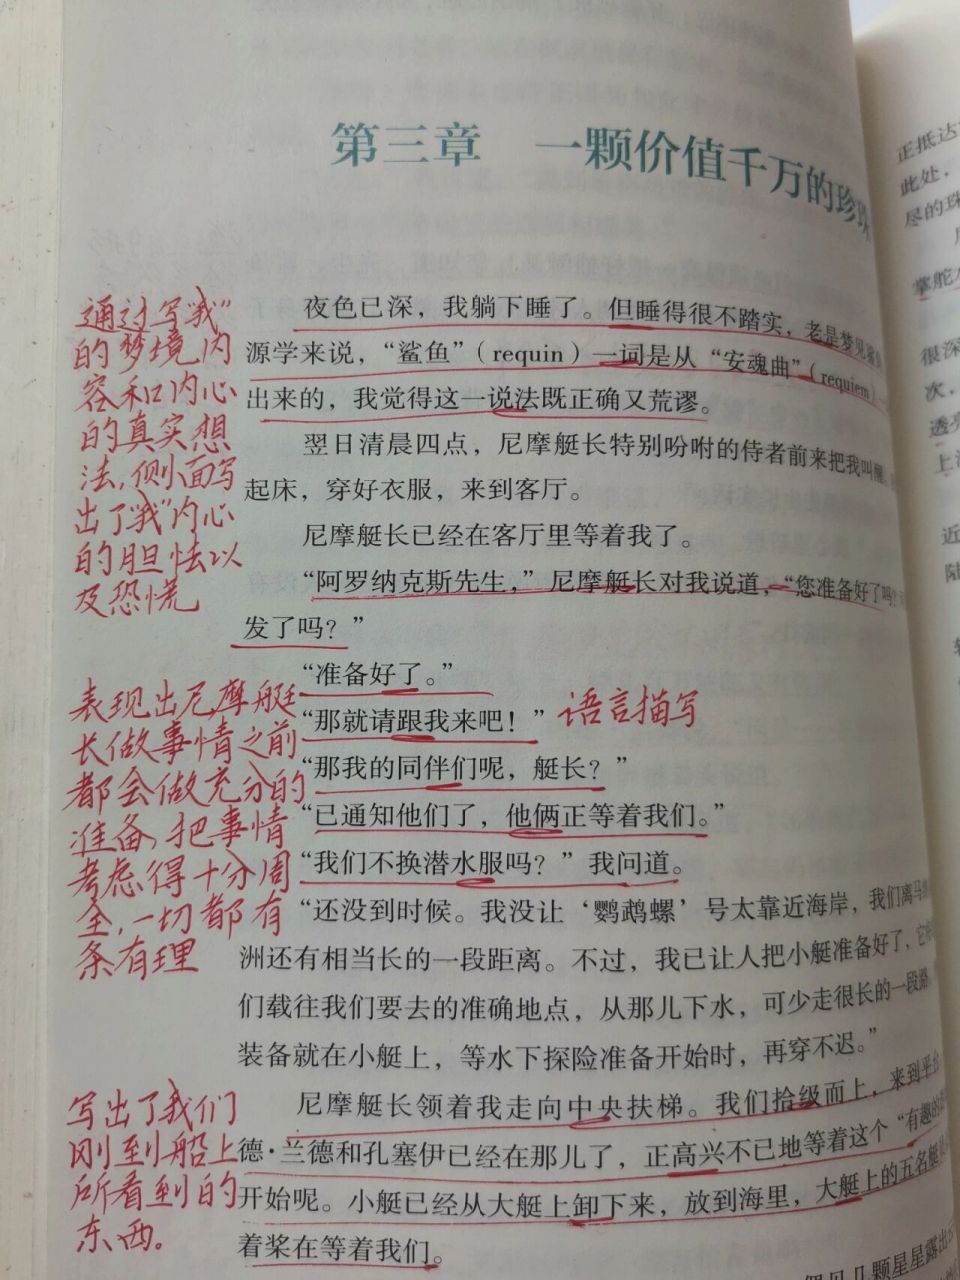 第三章 一颗价值千万的珍珠
夜色已深，我躺下睡了。但睡得很不踏实，老是梦见鲨鱼
源学来说，“鲨鱼”（requin）一词是从“安魂曲”（requiem）
出来的，我觉得这一说法既正确又荒谬。
翌日清晨四点，尼摩艇长特别吩咐的侍者前来把我叫醒
起床，穿好衣服，来到客厅。
尼摩艇长已经在客厅里等着我了。
“阿罗纳克斯先生，”尼摩艇长对我说道，“您准备好了吗？
发了吗？”
“准备好了。”
“那就请跟我来吧！”
“那我的同伴们呢，艇长？”
“已通知他们了，他俩正等着我们。”
“我们不换潜水服吗？”我问道。
“还没到时候。我没让‘鹦鹉螺’号太靠近海岸，我们离马
洲还有相当长的一段距离。不过，我已让人把小艇准备好了，它
们载往我们要去的准确地点，从那儿下水，可少走很长的一段路。
装备就在小艇上，等水下探险准备开始时，再穿不迟。”
尼摩艇长领着我走向中央扶梯。我们拾级而上，来到平台
德·兰德和孔塞伊已经在那儿了，正高兴不已地等着这个“有趣的
开始呢。小艇已经从大艇上卸下来，放到海里，大艇上的五名艇
着桨在等着我们。
几颗星星露出
通过写“我”
的梦境内
容和内心
的真实想
法，侧面写
出了“我”内心
的胆怯以
及恐慌
表现出尼摩艇
长做事情之前
都会做充分的
准备，把事情
考虑得十分周
全，一切都有
条有理
语言描写
写出了我们
刚到船上
所看到的
东西。
正抵达
此处，
尽的珠
掌舵
很深
次，
透亮
上海
近
陆